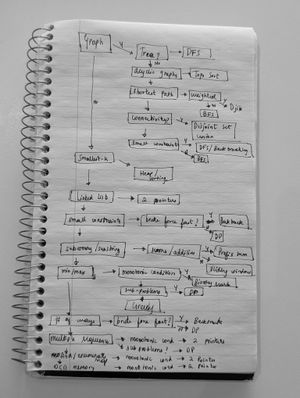 Graph Y Tree? Y DFS
Acyclic graph Topo sort
Shortest path Weighted Y Djik
N
BFS
Connectivity? Disjoint set
union
Small constraints DFS/Backtracking
BFS
Smallest-k Heap
sorting
Linked list 2 pointers
Small constraints brute force fast? Y Backtrack
N DP
subarray/substring sums/additive Y Prefix sum
N Sliding window
min/max monotonic condition Y Binary search
sub-problems Y DP
Greedy
# of ways brute force fast? Y Backtrack
N DP
multiple sequences monotonic cond 2 pointers
sub problems? DP
monotonic cond 2 pointer
O(1) memory monotonic cond 2 pointer